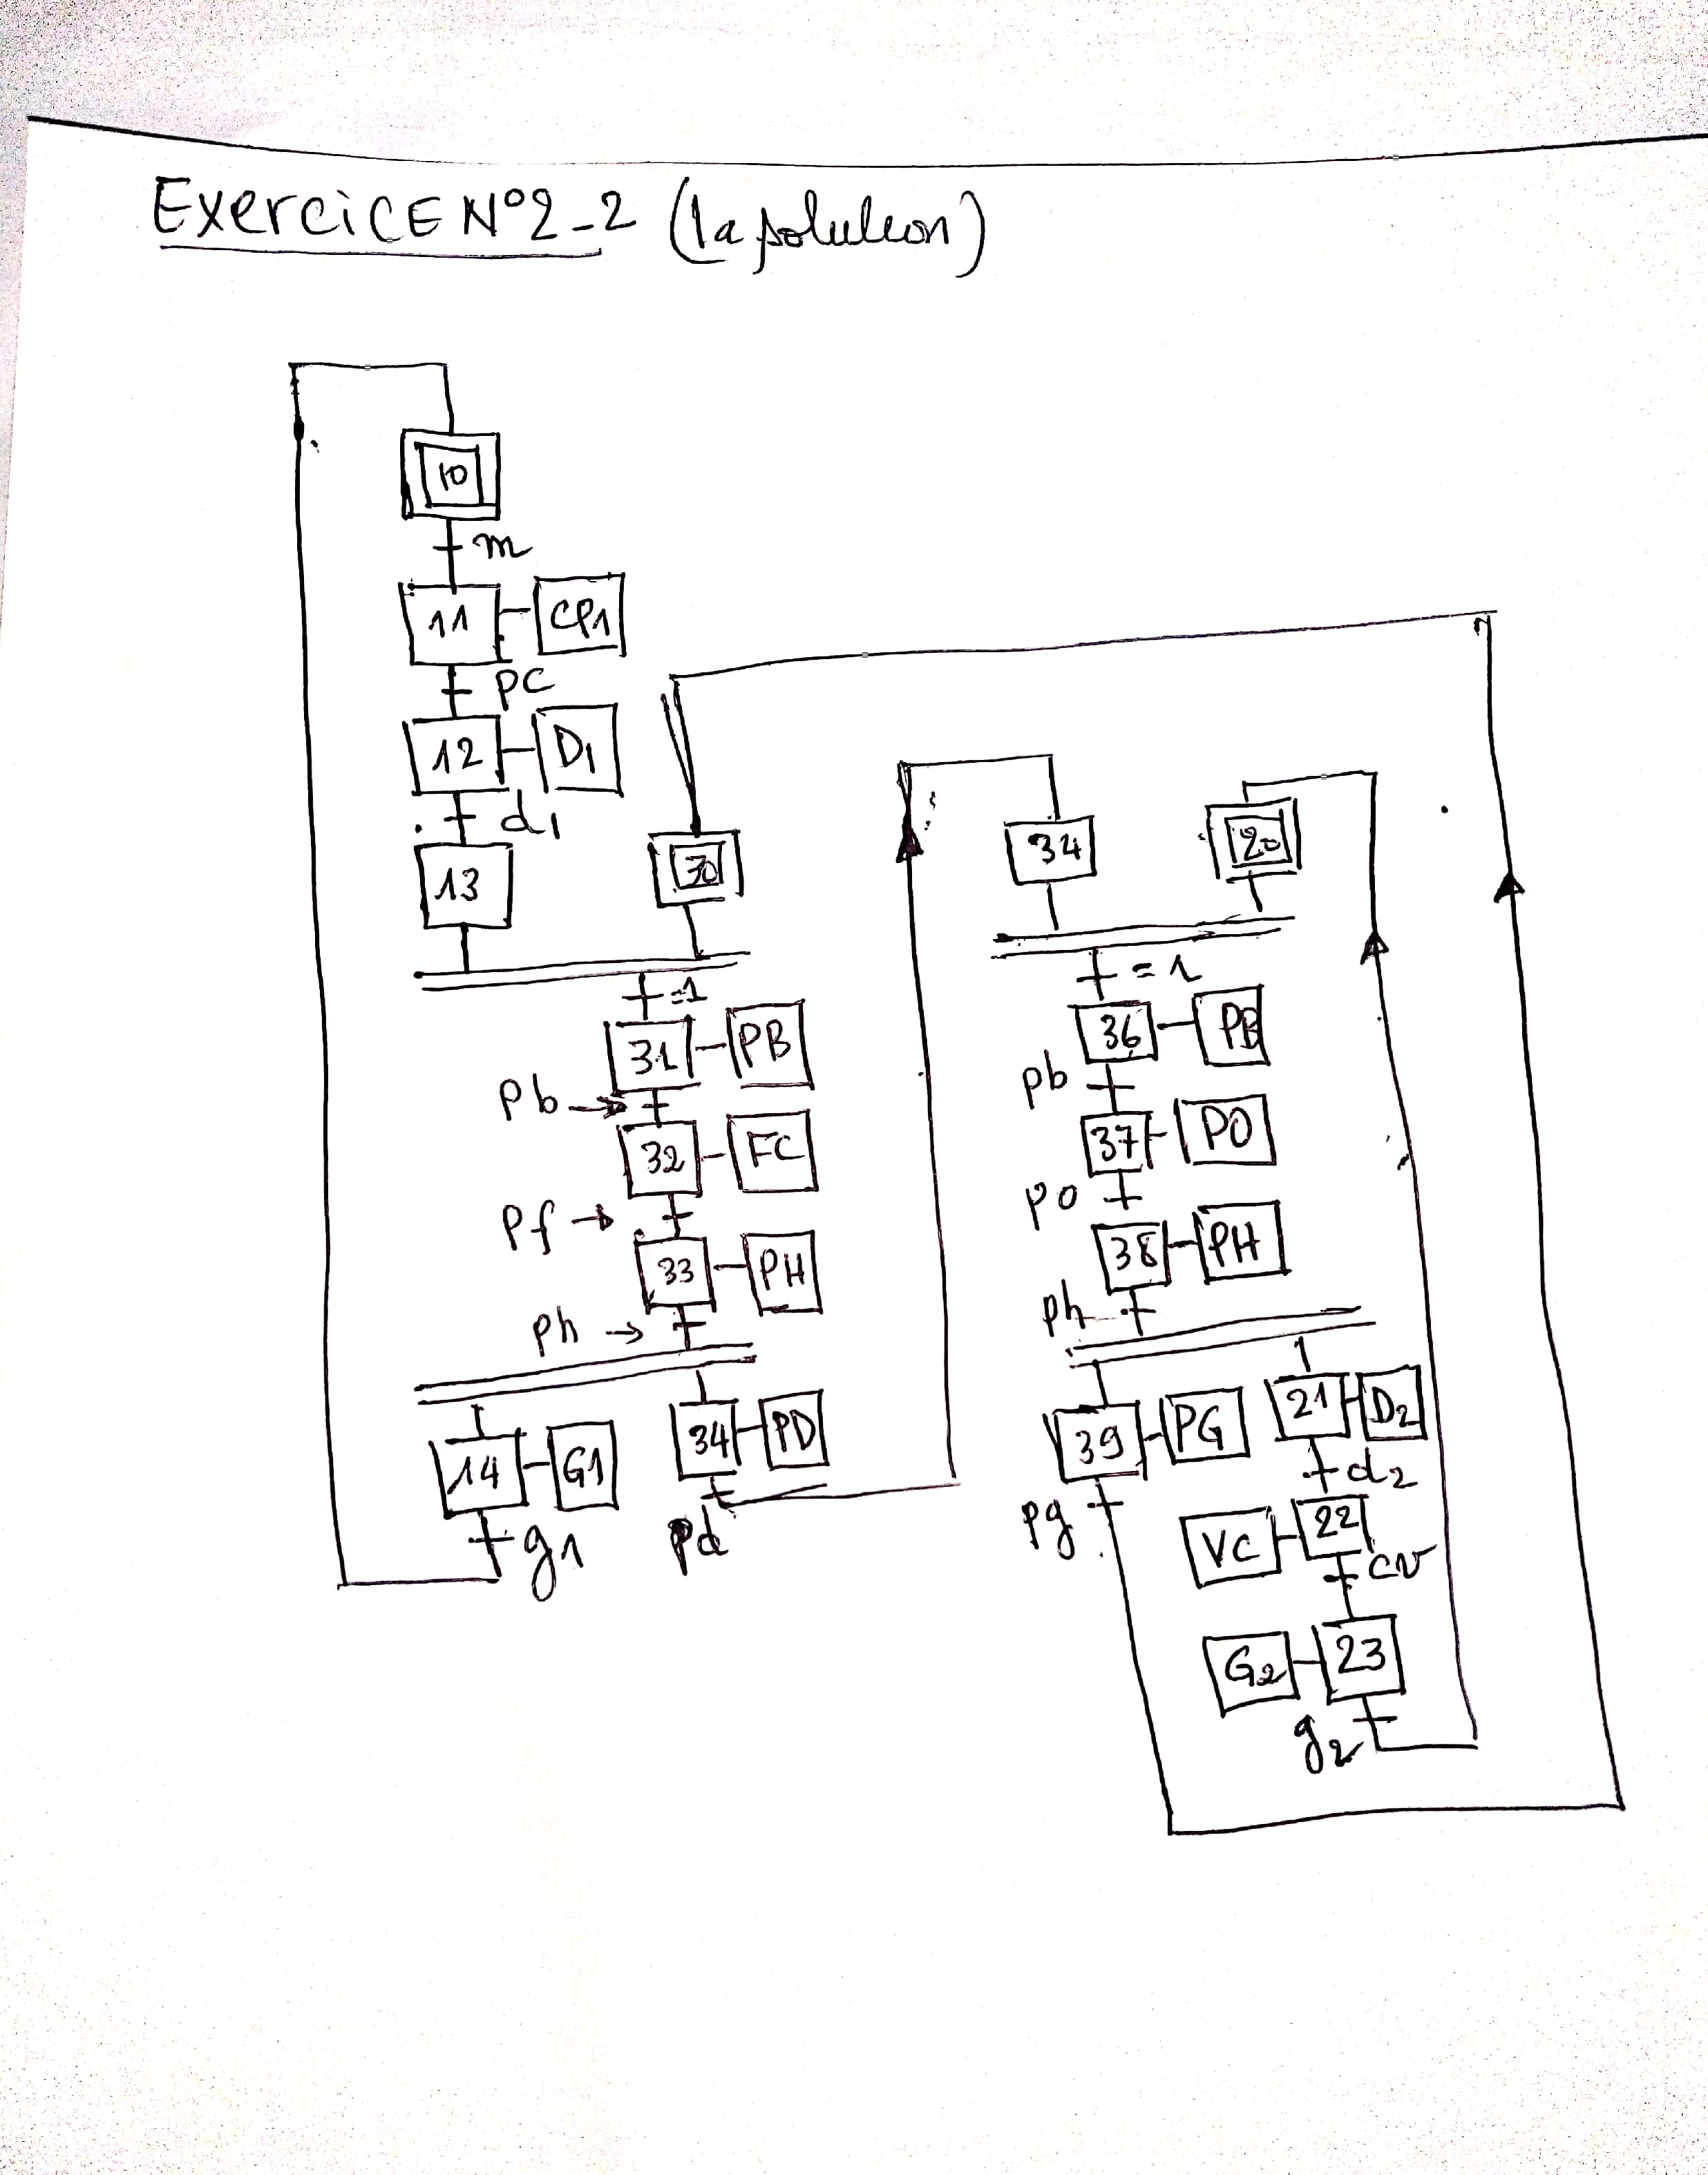 ExerciCE N°2-2 (la solution)
10
m
11 CP1
pc
12 D1
d1
13 30
=1
31 PB
pb
32 FC
pf
33 PH
ph
14 G1 34 PD
g1 pd
34 20
=1
36 PB
pb
37 PO
po
38 PH
ph
39 PG 21 D2
pg d2
VC 22
cv
G2 23
g2